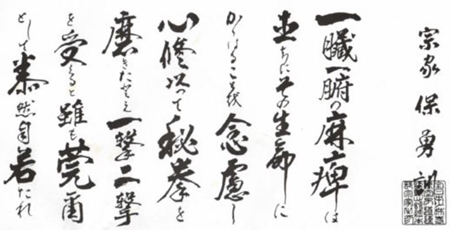 宗家 保勇 訓
一臓一腑の麻痺は
直ちにその生命に
かゝはることを念慮し
心修以つて秘拳を
磨きたとえ一撃二撃
を受くると雖も莞爾
として泰然自若たれ